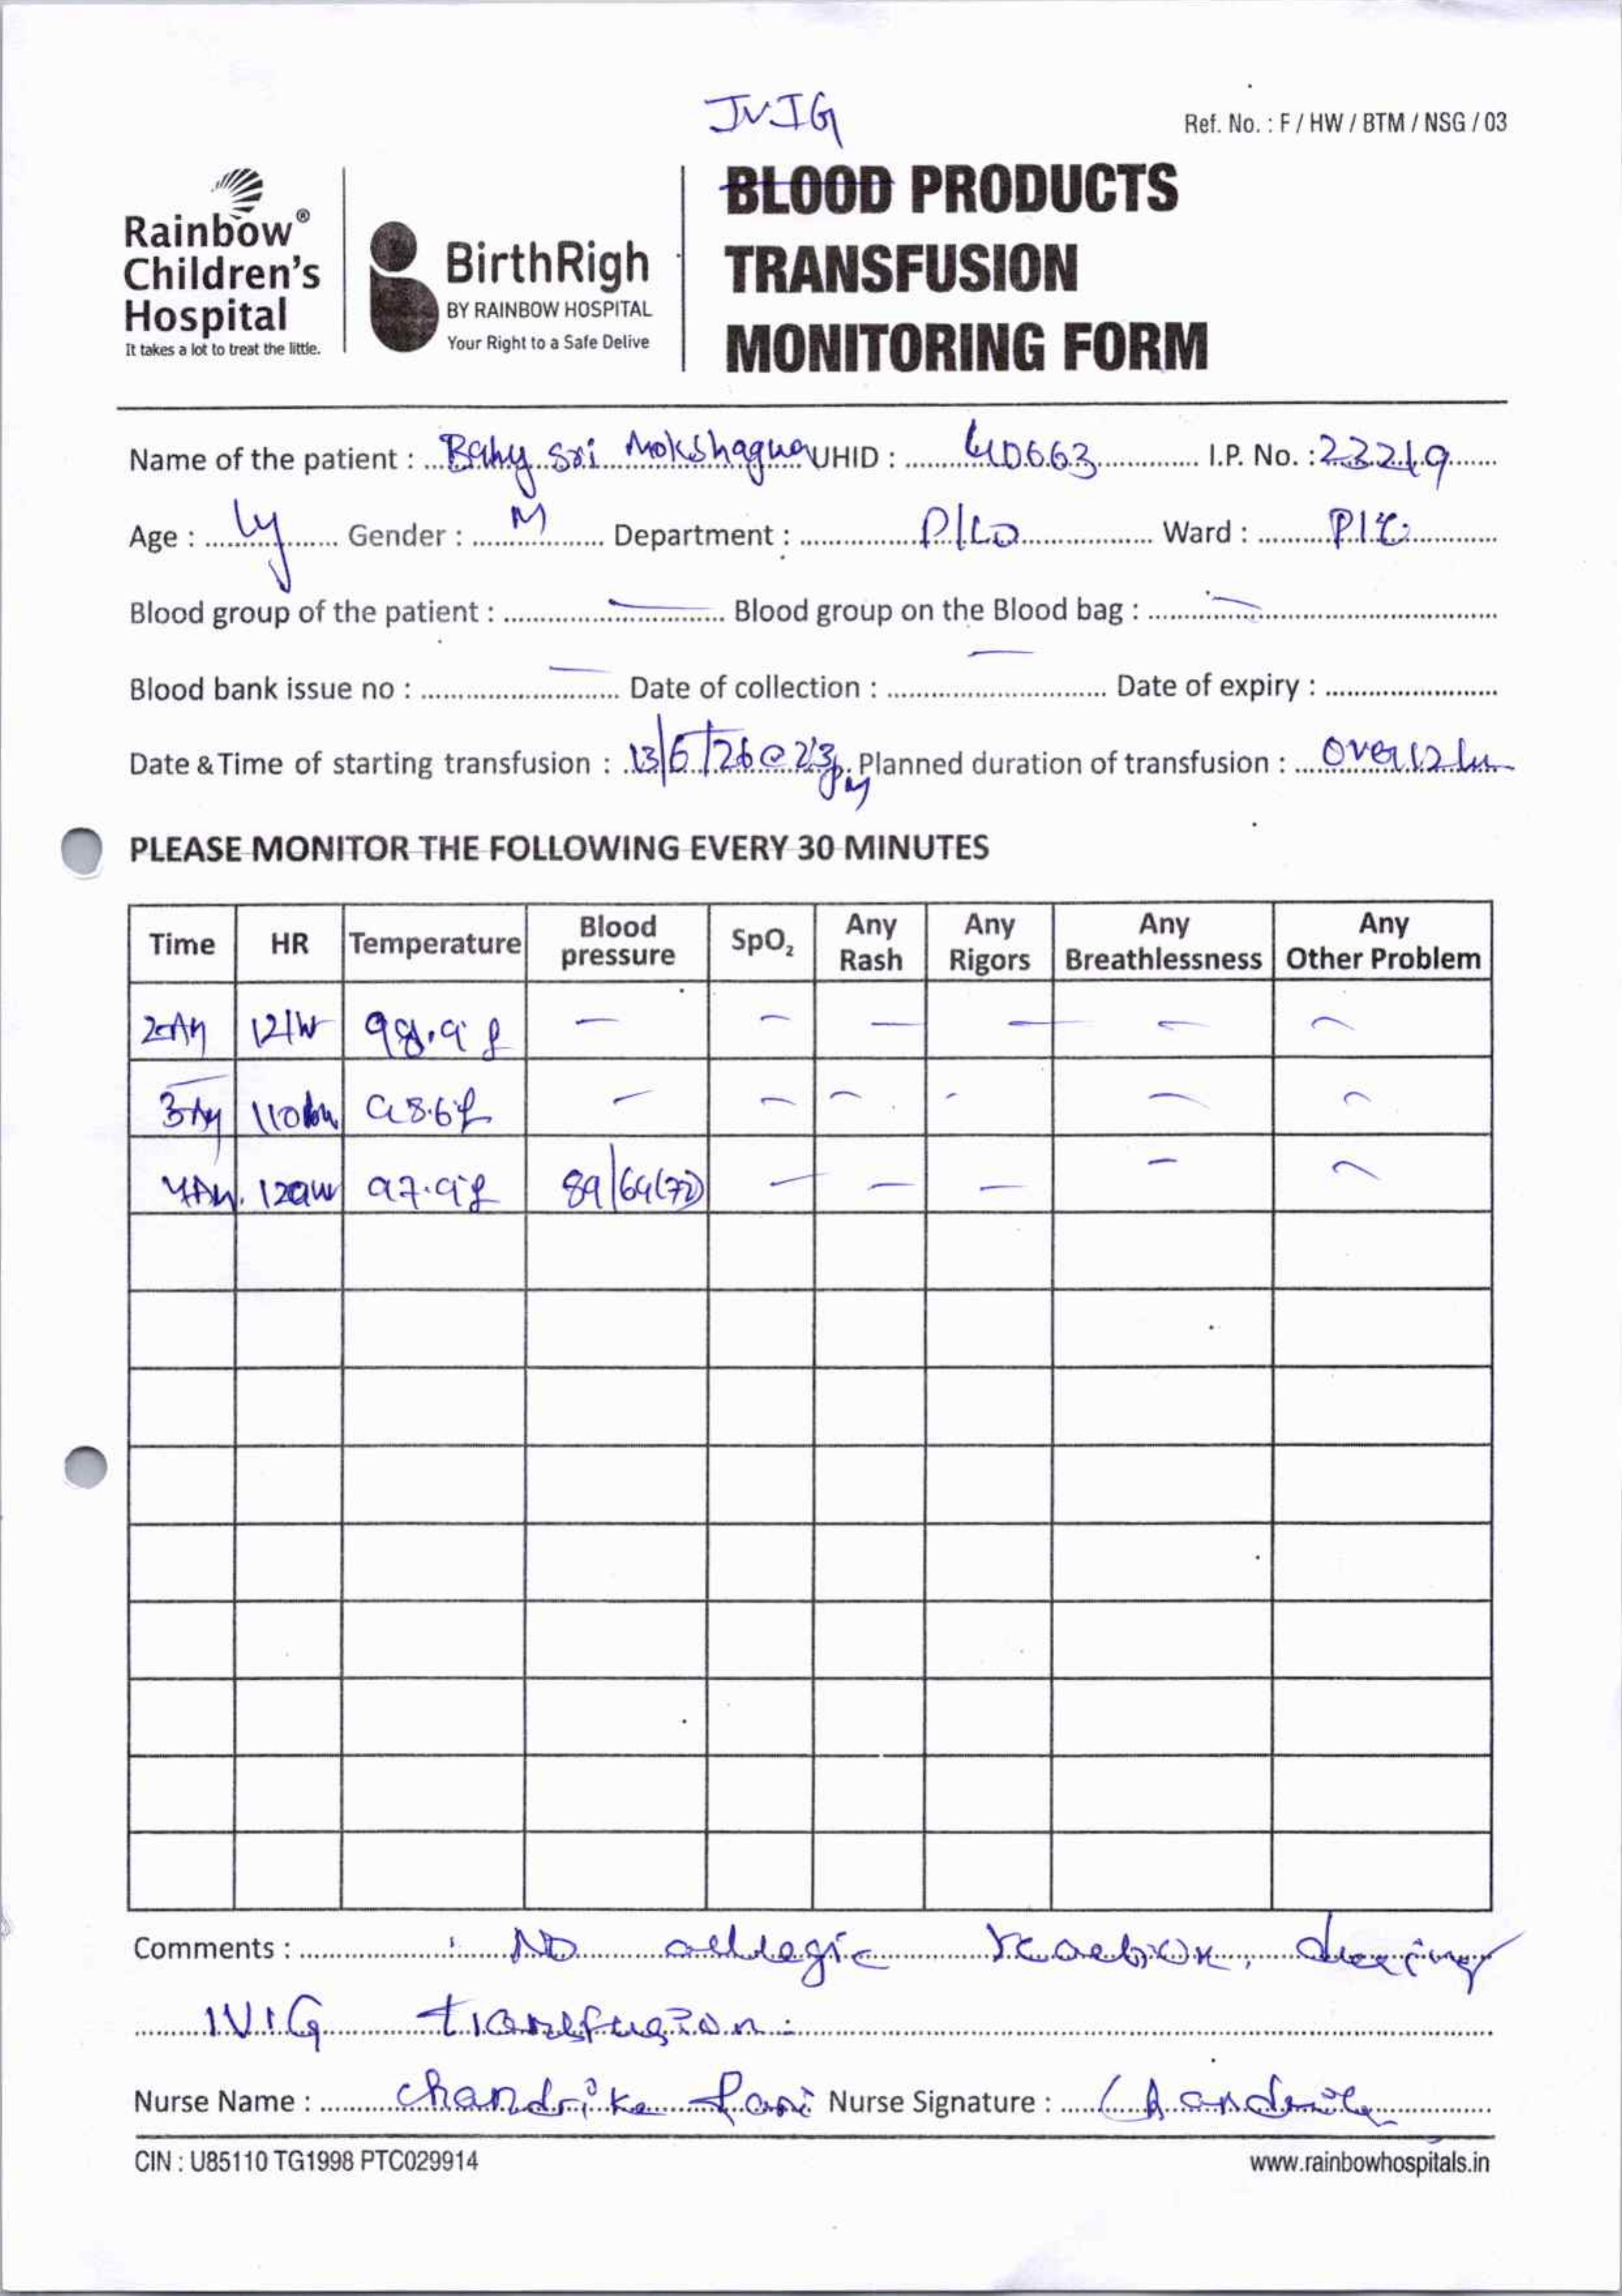 IVIG
Ref. No. : F / HW / BTM / NSG / 03
Rainbow®
Children's
Hospital
It takes a lot to treat the little.
BirthRigh
BY RAINBOW HOSPITAL
Your Right to a Safe Delive
BLOOD PRODUCTS
TRANSFUSION
MONITORING FORM
Name of the patient : Baby Sri Mokshagna UHID : 410663 I.P. No. : 22219
Age : 1y Gender : M Department : Ward :
Blood group of the patient : — Blood group on the Blood bag : —
Blood bank issue no : — Date of collection : — Date of expiry :
Date & Time of starting transfusion : Planned duration of transfusion : over 12 hr
PLEASE MONITOR THE FOLLOWING EVERY 30 MINUTES
Time HR Temperature Blood pressure SpO₂ Any Rash Any Rigors Any Breathlessness Any Other Problem
2AM 98.9 f — — — — — —
3AM 98.6 f — — — — — —
4AM 97.9 f 89/64(72) — — — — —
Comments : No allegic reaction, during
IVIG transfusion.
Nurse Name : Chandrika Rani Nurse Signature : Chandrika
CIN : U85110 TG1998 PTC029914
www.rainbowhospitals.in